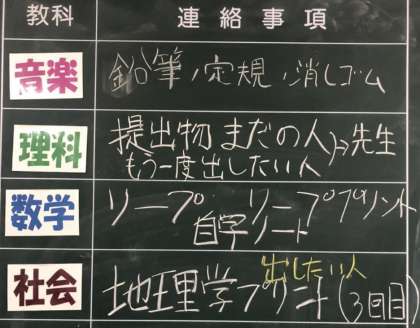 教科 連絡事項
音楽 鉛筆、定規、消しゴム
理科 提出物まだの人
もう一度出したい人 }→先生
数学 リープ リーププリント
自学ノート
社会 地理学プリント(3回目)
出したい人